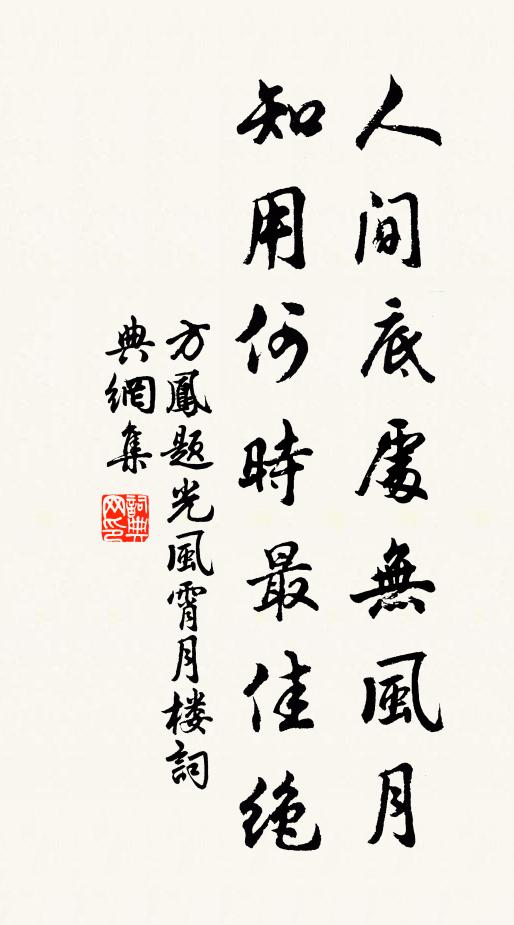 人間底處無風月
知用何時最佳绝
方鳳題光風霄月楼詞
典網集
詞典
网印